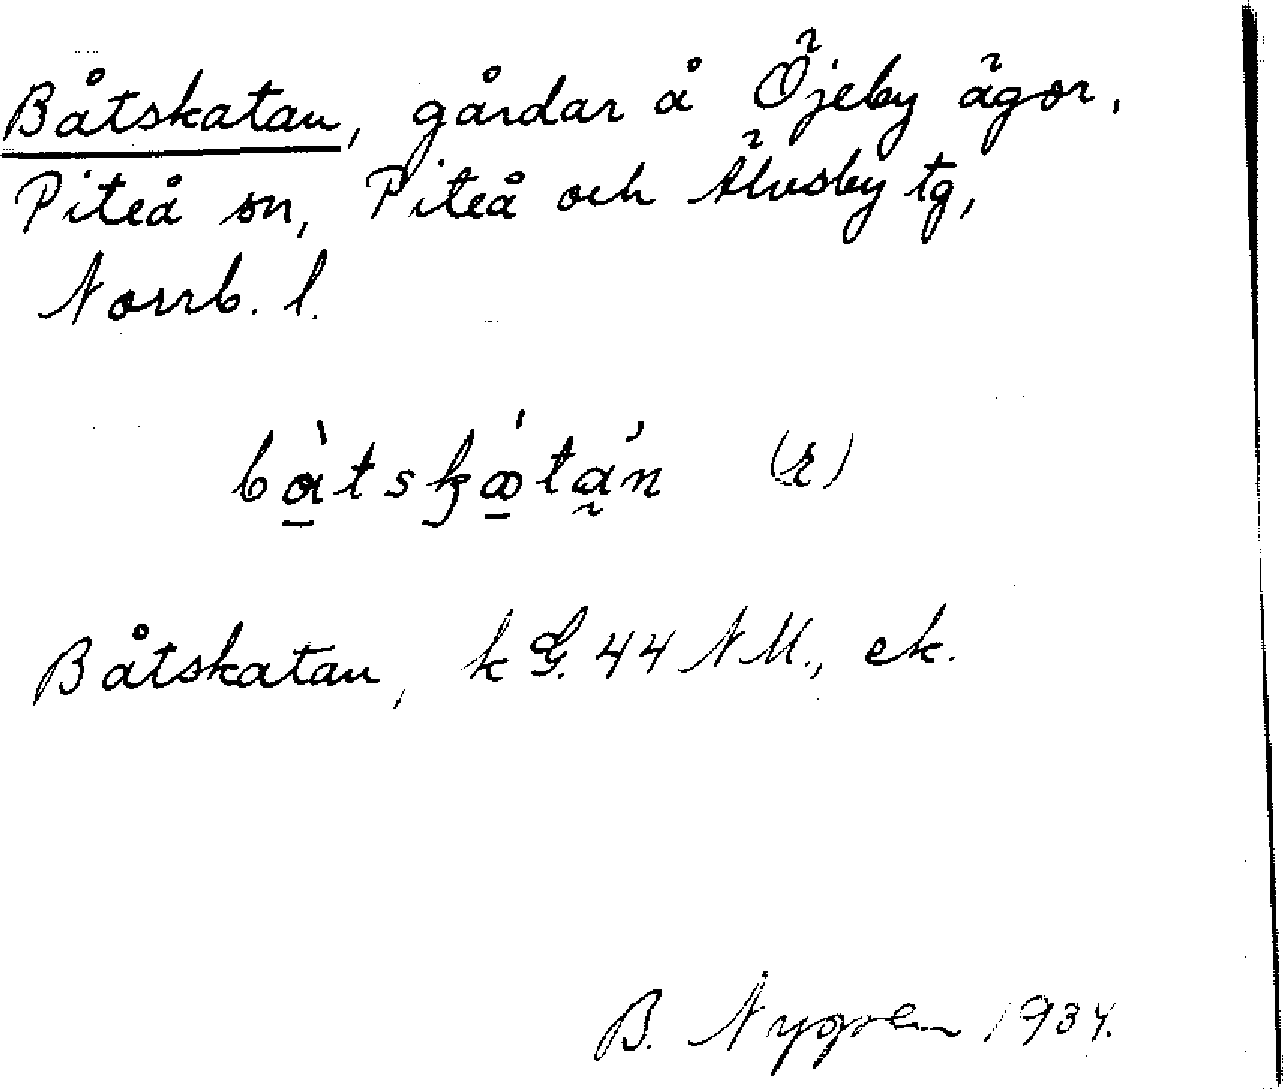 Båtskatan, gårdar å Öjeby ägor,
Piteå sn, Piteå och Älvsby tg,
Norrb. l.
bὰ̱tsk̡a̱̍tἀ̰n (r)
Båtskatan, k G. 44 NM., ek.
B. Nygren 1934.